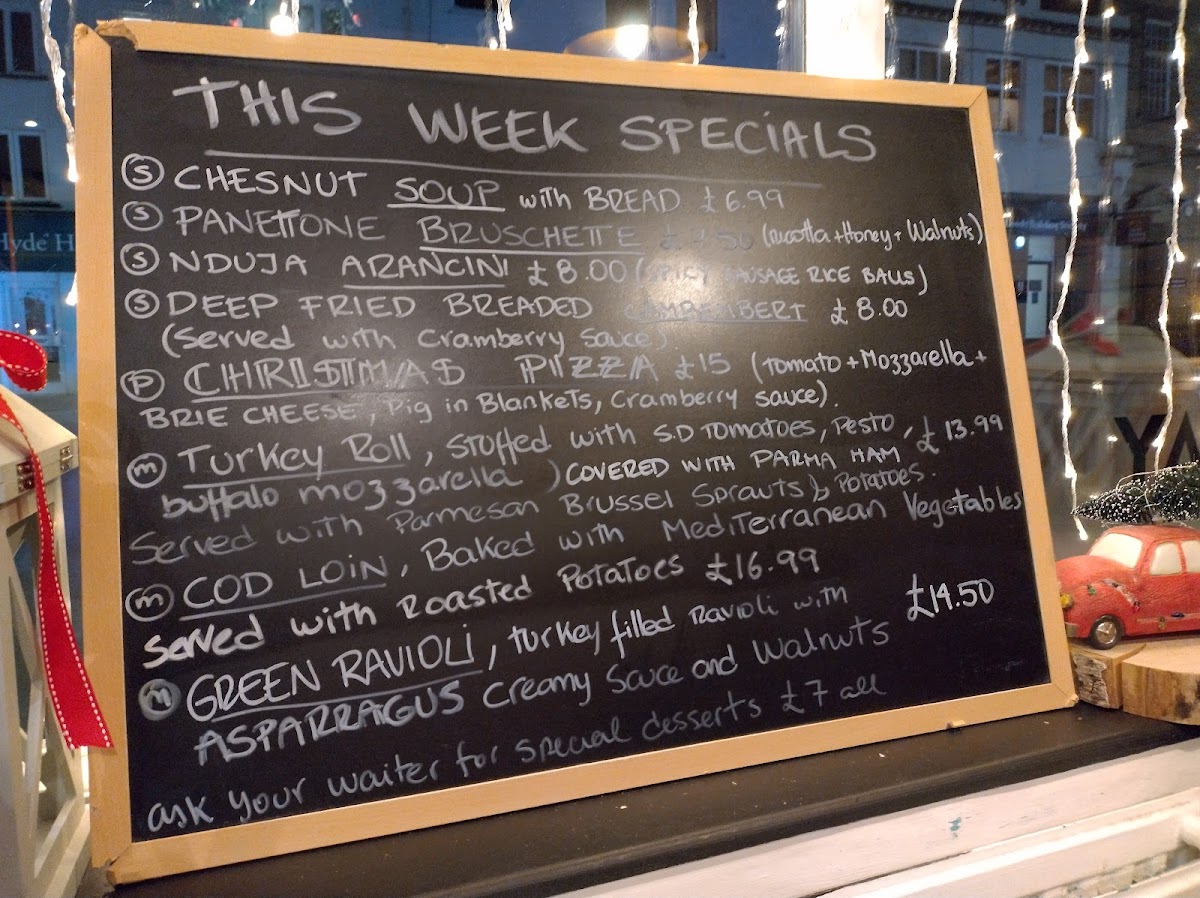 THIS WEEK SPECIALS
S CHESNUT SOUP with BREAD £6.99
S PANETTONE BRUSCHETTE (RICOTTA + HONEY + WALNUTS)
S NDUJA ARANCINI £8.00 (SPICY SAUSAGE RICE BALLS)
S DEEP FRIED BREADED CAMEMBERT £8.00
(Served with Cramberry Sauce)
P CHRISTMAS PIZZA £15 (TOMATO + MOZZARELLA +
BRIE CHEESE, Pig in Blankets, Cramberry sauce).
m Turkey Roll, STOFFED with S.D TOMATOES, Pesto, £13.99
buffalo mozzarella) COVERED WITH PARMA HAM
Served with Parmesan Brussel Sprouts & Potatoes.
m COD LOIN, Baked with MediTerranean Vegetables
served with Roasted Potatoes £16.99
m GREEN RAVIOLI, turkey filled Ravioli with £14.50
ASPARRAGUS creamy sauce and Walnuts
ask your waiter for special desserts £7 all
Hyde H
YA